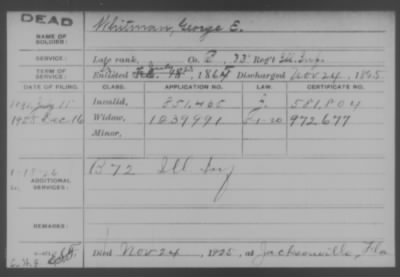 DEAD
NAME OF SOLDIER:
Whitman, George E.
SERVICE:
Late rank, Co. Reg't Ill. Inf.
TERM OF SERVICE:
Enlisted July 1864 Discharged Nov 24, 1865.
DATE OF FILING. CLASS. APPLICATION NO. LAW. CERTIFICATE NO.
July 11 Invalid, 851,465 581,804
1925 Dec 16 Widow, 1239991 972677
Minor,
ADDITIONAL SERVICES:
B 72 Ill Inf
REMARKS:
Died Nov 24, 1925, at Jacksonville, Fla